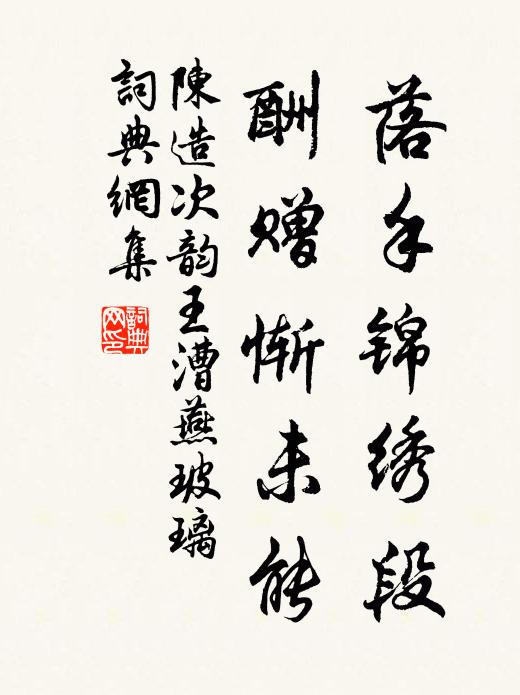 落手锦绣段
酬赠惭未能
陳造次韵王漕燕玻璃
詞典網集
詞典网印